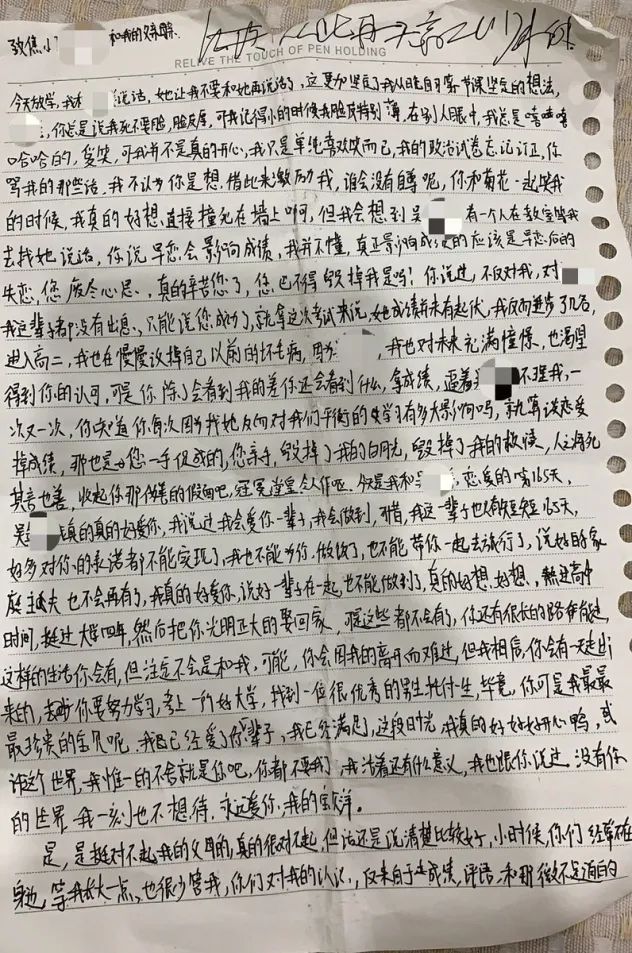 致焦小 和我的父母亲
RELIVE THE TOUCH OF PEN HOLDING
今天放学,我和 说话,她让我不要和她再说话了,这更加坚定了我从
,你总是说我死不要脸,脸皮厚,可我记得小的时候我脸皮特别薄,在别人眼中,我总是嘻嘻嘻
哈哈的,傻笑,可我并不是真的开心,我只是单纯喜欢笑而已,我的政治试卷忘记订正,你
骂我的那些话,我不认为你是想借此来激励我,谁会没有自尊呢,你和菊花一起笑我
的时候,我真的好想直接撞死在墙上啊,但我会想到吴 有一个人在教室等我
去找她说话,你说早恋会影响成绩,我并不懂,真正影响成绩的应该是早恋后的
失恋,您废尽心思,真的辛苦您了,您巴不得毁掉我是吗!你说过,不仅对我,对
我这辈子都没有出息,只能说您成功了,就拿这次考试来说,她成绩并未有起伏,我反而进步了几名,
进入高二,我也在慢慢改掉自己以前的坏毛病,因为 ,我也对未来充满憧憬,也渴望
得到你的认可,可是你除了会看到我的差你还会看到什么,拿成绩, 不理我,一
次又一次,你知道你每次因为我她反向对我们平衡的 学习有多大影响吗,就算谈恋爱
掉成绩,那也是 您一手促成的,您亲手,毁掉了我的白月光,毁掉了我的救赎,人之将死
其言也善,收起你那伪善的假面吧,冠冕堂皇令人作呕。今是我和 恋爱的第165天,
吴 我真的真的好爱你,我说过我会爱你一辈子,我会做到,可惜,我这一辈子也只有短短165天,
好多对你的承诺都不能实现了,我也不能为你做饭了,也不能带你一起去旅行了,说好的家
庭主夫也不会再有了,我真的好爱你,说好一辈子在一起,也不能做到了,真的好想,好想,熬过高中
时间,挺过大学四年,然后把你光明正大的娶回家,可这些都不会有了,你还有很长的路
这样的生活你会有,但注定不会是和我,可能,你会因我的离开而难过,但我相信,你会有一天走出
来的,去 你要努力学习,考上一所好大学,找到一位很优秀的男生托付一生,毕竟,你可是我最最
最珍贵的宝贝呢,我自己已经爱了你一辈子,我已经满足,这段时光,我真的好好好开心鸭,或
许这个世界,我惟一的不舍就是你吧,你都不要我了,我活着还有什么意义,我也跟你说过,没有你
的世界,我一刻也不想待,永远爱你,我的宝
是,是挺对不起我的父母的,真的很对不起,但话还是说清楚比较好,小时候,你们经常不在
身边,等我长大一点,也很少管我,你们对我的认识,仅来自于 成绩,评语,和那微不足道的